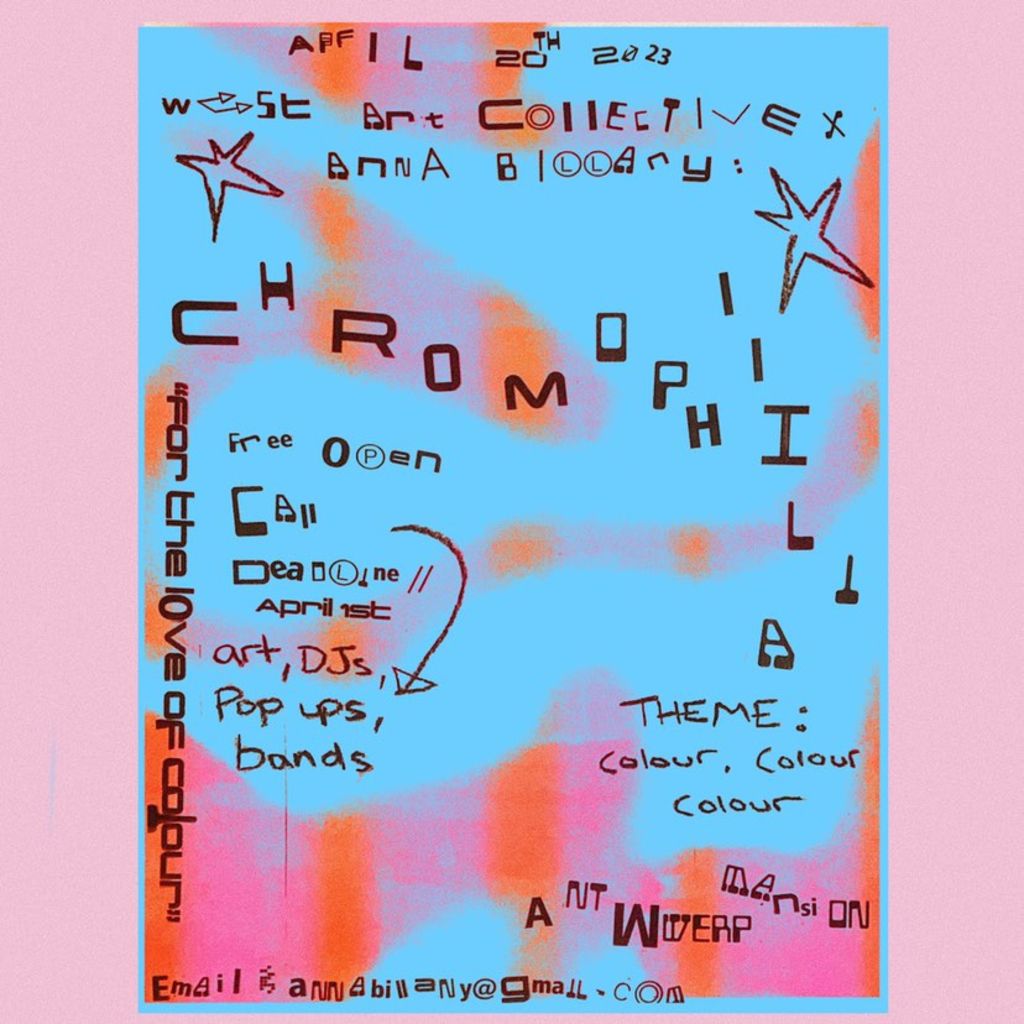 APrIL 20TH 2023
wEst Art COllEcTIvEx
AnnA BILLAny:
CHROMOPHIIILIA
Free OPen
CAll
DeaDLine //
April 1st
art, DJs,
Pop ups,
bands
"For the lOve oF colour"
THEME:
colour, colour
colour
ANTWwERP mAnsiON
EmAil : annAbillaNy@gmaIL.cOm